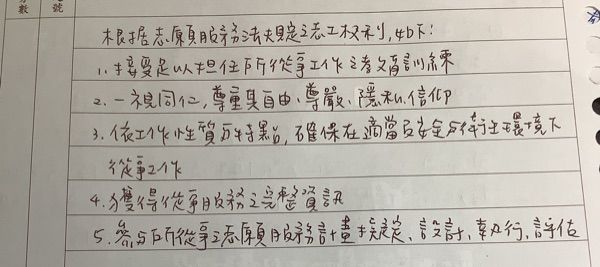 數
號
根據志願服務法規定之志工權利,如下:
1.接受足以担任所從事工作之教育訓練
2.一視同仁,尊重其自由、尊嚴、隱私、信仰
3.依工作性質及特點,確保在適當安全與衛生環境下
從事工作
4.獲得從事服務之完整資訊
5.參与所從事之志願服務計畫擬定、設計、執行、評估